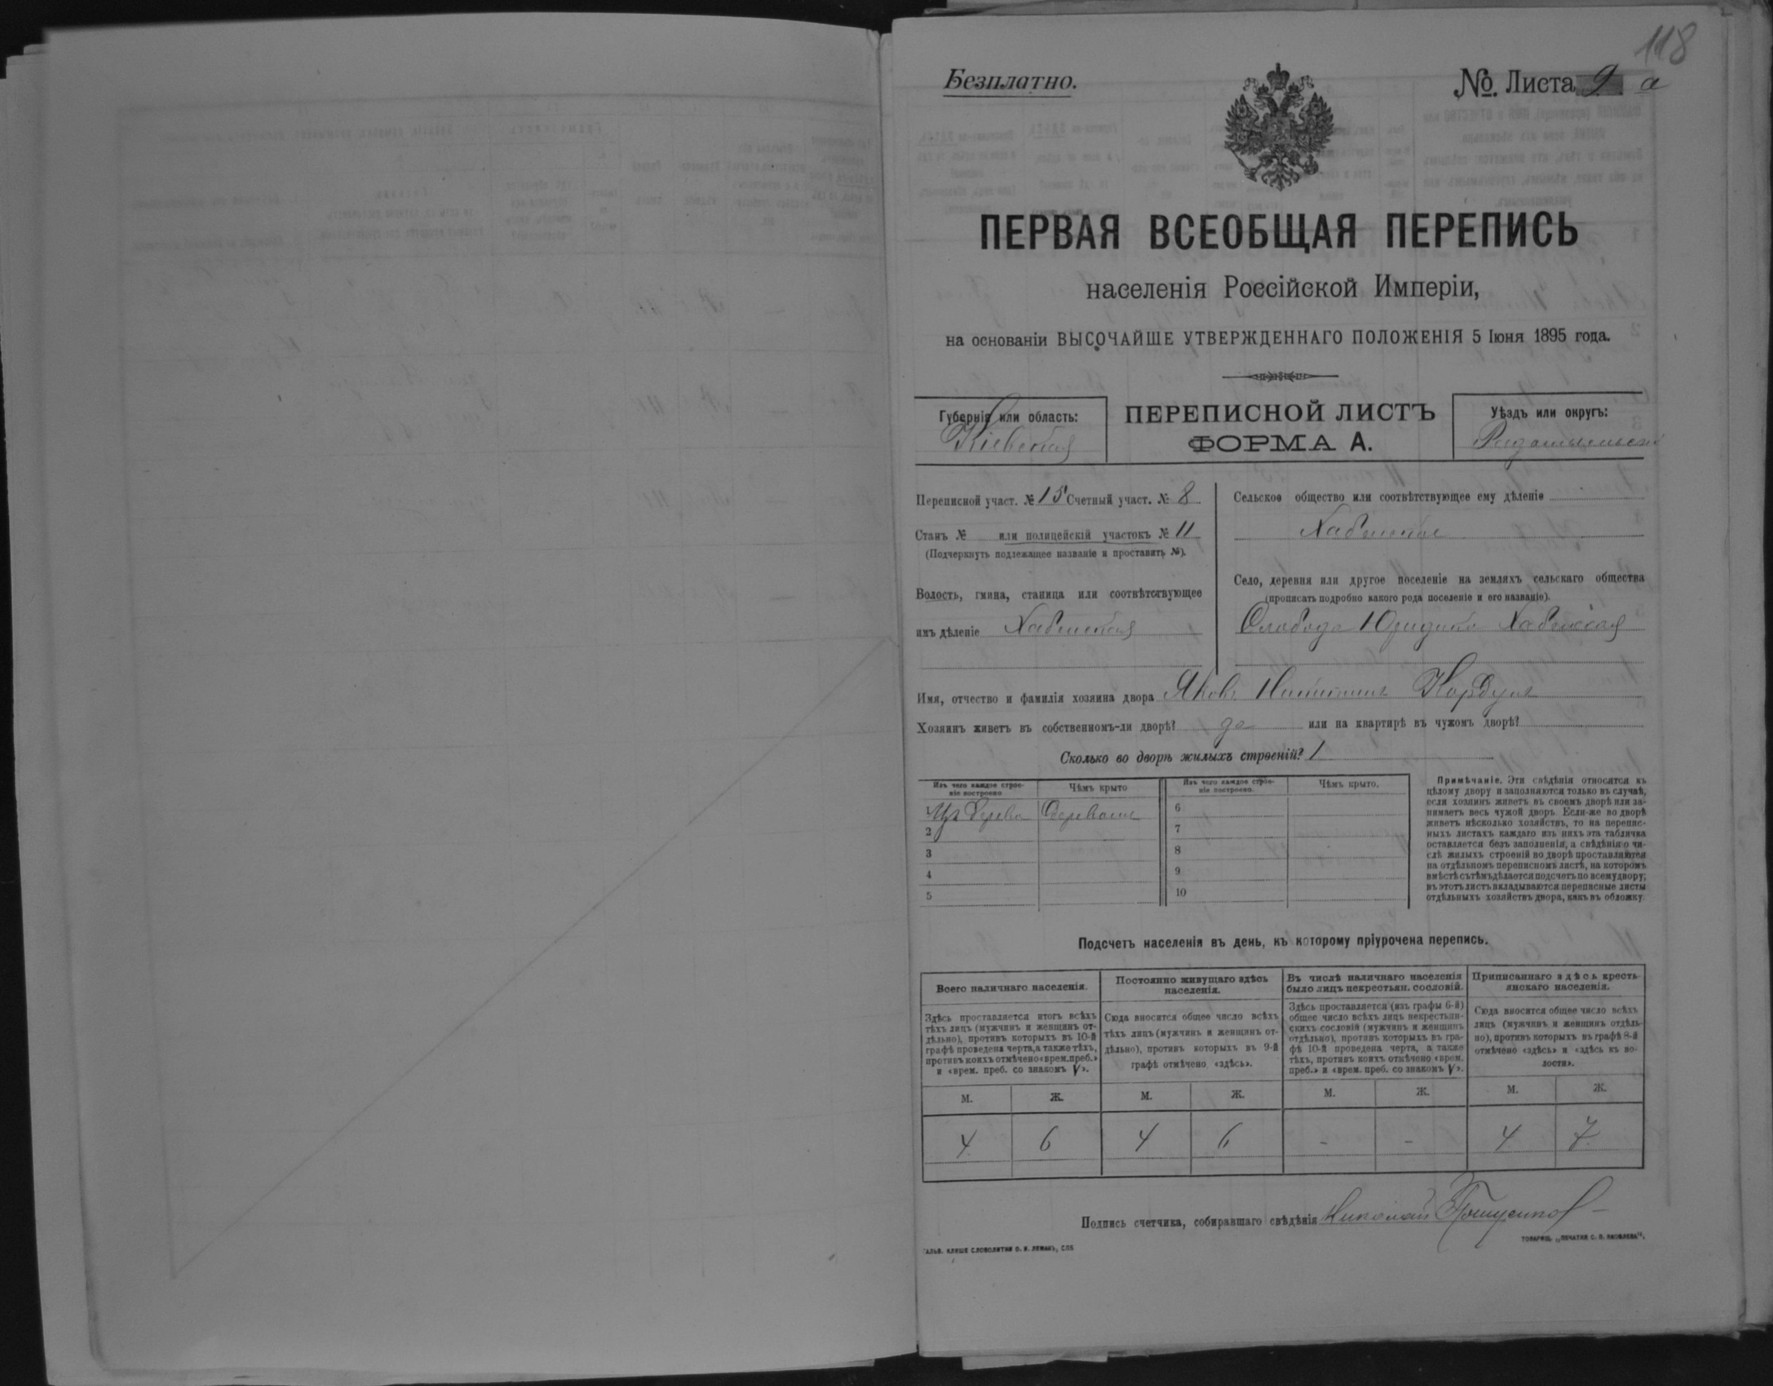 118
Безплатно.
№. Листа 9 а
ПЕРВАЯ ВСЕОБЩАЯ ПЕРЕПИСЬ
населенія Россійской Имперіи,
на основаніи ВЫСОЧАЙШЕ УТВЕРЖДЕННАГО ПОЛОЖЕНІЯ 5 Іюня 1895 года.
Губернія или область:
Кіевская
ПЕРЕПИСНОЙ ЛИСТЪ
ФОРМА А.
Уѣздъ или округъ:
Переписной участ. № 15 Счетный участ. № 8
Станъ № или полицейскій участокъ № 11
(Подчеркнуть подлежащее названіе и проставить №).
Волость, гмина, станица или соотвѣтствующее
имъ дѣленіе Хабенская
Сельское общество или соотвѣтствующее ему дѣленіе
Хабенское
Село, деревня или другое поселеніе на земляхъ сельскаго общества
(прописать подробно какого рода поселеніе и его названіе).
Слобода Юридика Хабенская
Имя, отчество и фамилія хозяина двора Яковъ
Хозяинъ живетъ въ собственномъ-ли дворѣ? да или на квартирѣ въ чужомъ дворѣ?
Сколько во дворѣ жилыхъ строеній? 1
Изъ чего каждое строе-
ніе построено
Чѣмъ крыто
Изъ чего каждое строе-
ніе построено.
Чѣмъ крыто.
1 Изъ дерева Деревомъ 6
2 7
3 8
4 9
5 10
Примѣчаніе. Эти свѣдѣнія относятся къ
цѣлому двору и заполняются только въ случаѣ,
если хозяинъ живетъ въ своемъ дворѣ или за-
нимаетъ весь чужой дворъ. Если-же во дворѣ
живетъ нѣсколько хозяйствъ, то на перепис-
ныхъ листахъ каждаго изъ нихъ эта табличка
оставляется безъ заполненія, а свѣдѣнія о чи-
слѣ жилыхъ строеній во дворѣ проставляются
на отдѣльномъ переписномъ листѣ, на которомъ
вмѣстѣ съ тѣмъ дѣлается подсчетъ по всему двору;
въ этотъ листъ вкладываются переписные листы
отдѣльныхъ хозяйствъ двора, какъ въ обложку.
Подсчетъ населенія въ день, къ которому пріурочена перепись.
Всего наличнаго населенія.
Здѣсь проставляется итогъ всѣхъ
тѣхъ лицъ (мужчинъ и женщинъ от-
дѣльно), противъ которыхъ въ 10-й
графѣ проведена черта, а также тѣхъ,
противъ коихъ отмѣчено «врем. преб.»
и «врем. преб. со знакомъ V».
Постоянно живущаго здѣсь
населенія.
Сюда вносится общее число всѣхъ
тѣхъ лицъ (мужчинъ и женщинъ от-
дѣльно), противъ которыхъ въ 9-й
графѣ отмѣчено «здѣсь».
Въ числѣ наличнаго населенія
было лицъ некрестьян. сословій.
Здѣсь проставляется (изъ графы 6-й)
общее число всѣхъ лицъ некрестьян-
скихъ сословій (мужчинъ и женщинъ
отдѣльно), противъ которыхъ въ гра-
фѣ 10-й проведена черта, а также
тѣхъ, противъ коихъ отмѣчено «врем.
преб.» и «врем. преб. со знакомъ V».
Приписаннаго здѣсь кресть-
янскаго населенія.
Сюда вносится общее число всѣхъ
лицъ (мужчинъ и женщинъ отдѣль-
но), противъ которыхъ въ графѣ 8-й
отмѣчено «здѣсь» и «здѣсь въ во-
лости».
М. Ж. М. Ж. М. Ж. М. Ж.
4 6 4 6 - - 4 7
Подпись счетчика, собиравшаго свѣдѣнія Николай
ГАЛЬВ. КЛИШЕ СЛОВОЛИТНИ О. И. ЛЕМАНЪ, СПБ
ТОВАРИЩ. „ПЕЧАТНЯ С. П. ЯКОВЛЕВА“.